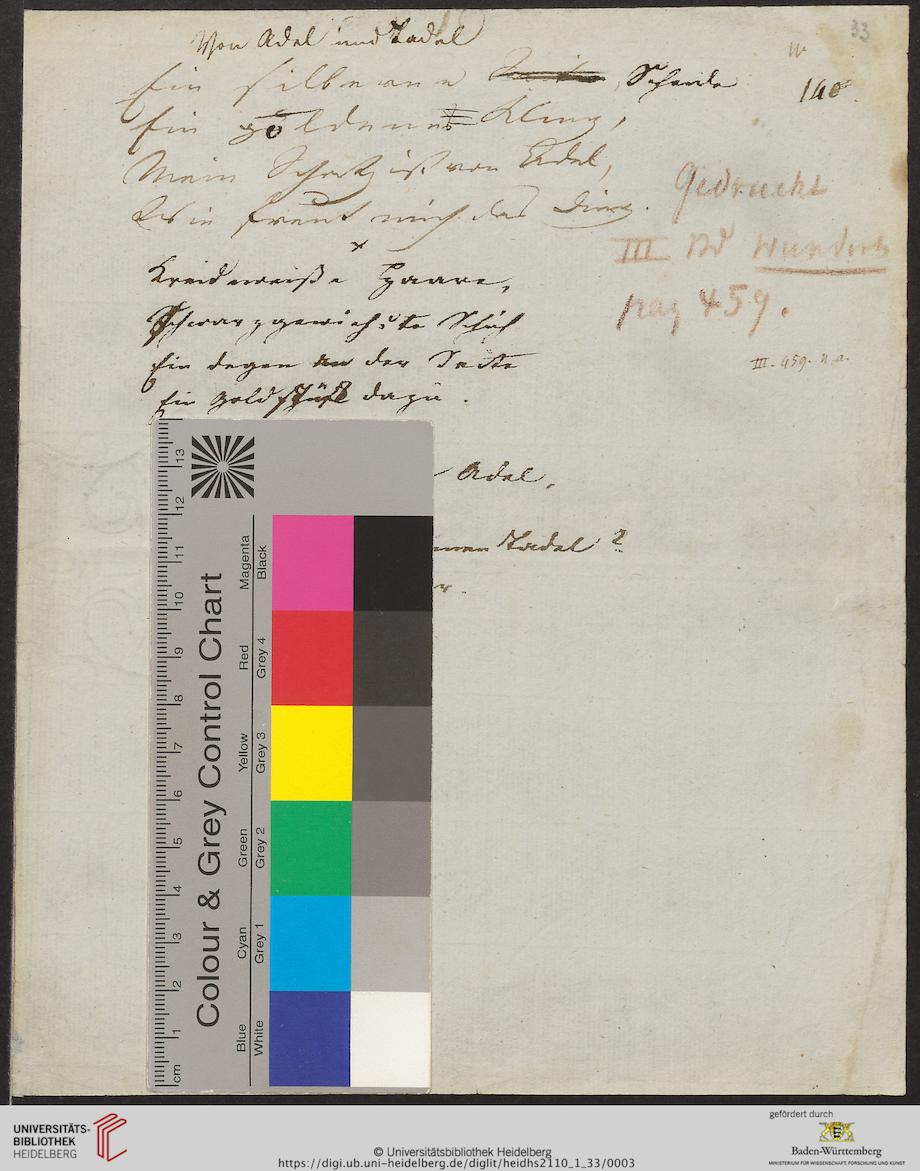 Von Adel und Tadel
33
Ein silberne Scheide
140.
Ein goldene Kling,
Mein Schatz ist von Adel,
Wie freut mich das Ding.
Gedruckt
III Bd Wunderh
pag 459.
Kreidweiße Haare,
Schwarzgewichste Schuh
III. 459. n. a.
Ein Degen an der Seite
Ein Goldstück dazu.
Adel,
Tadel?
Colour & Grey Control Chart
Blue Cyan Green Yellow Red Magenta
White Grey 1 Grey 2 Grey 3 Grey 4 Black
cm 1 2 3 4 5 6 7 8 9 10 11 12 13
UNIVERSITÄTS-
BIBLIOTHEK
HEIDELBERG
© Universitätsbibliothek Heidelberg
https://digi.ub.uni-heidelberg.de/diglit/heidhs2110_1_33/0003
gefördert durch
Baden-Württemberg
MINISTERIUM FÜR WISSENSCHAFT, FORSCHUNG UND KUNST